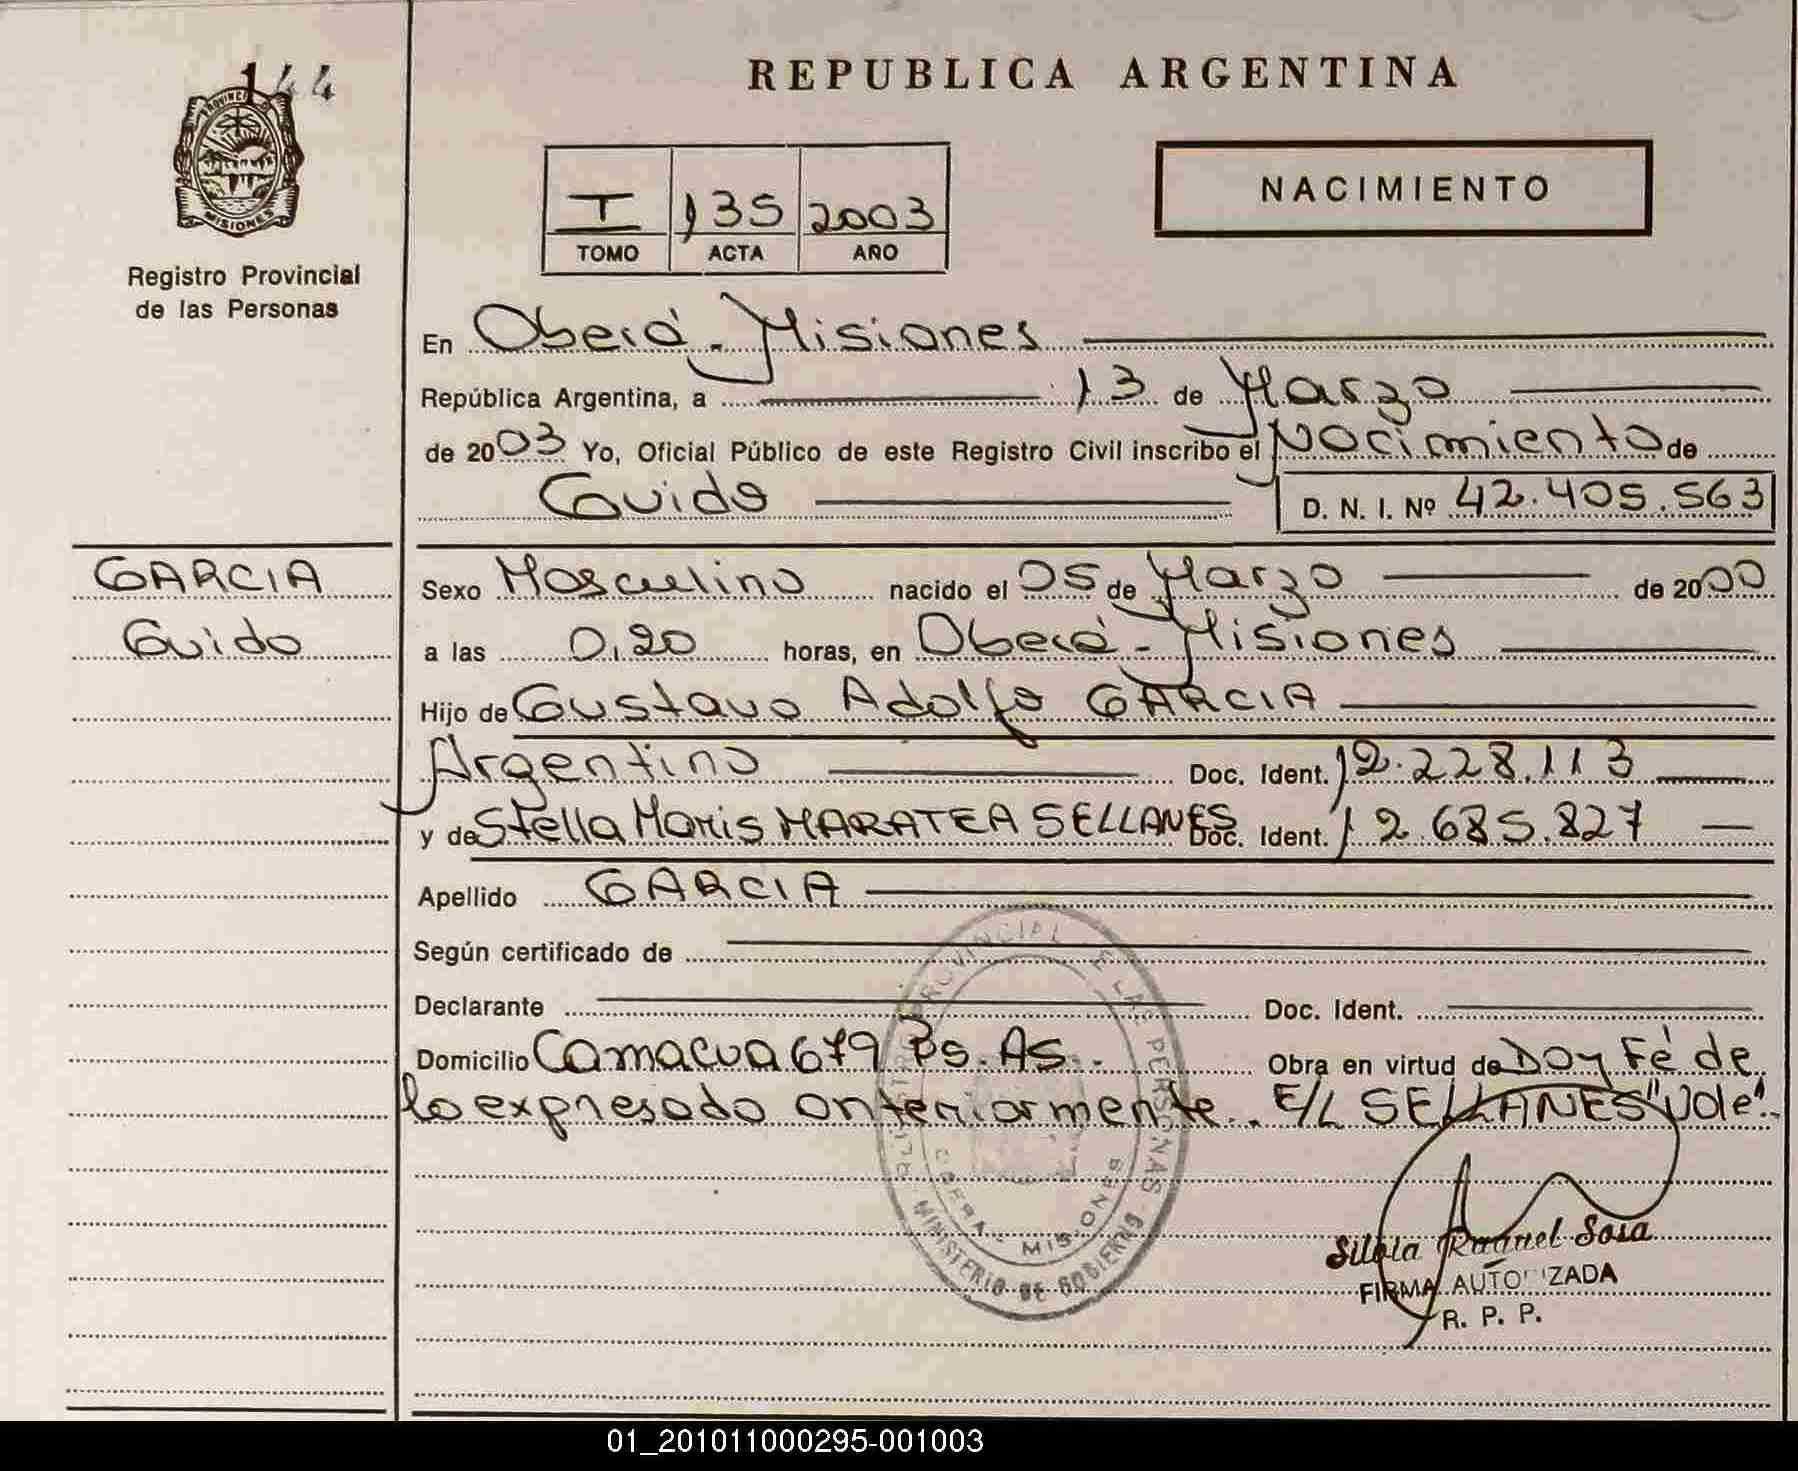 144
REPUBLICA ARGENTINA
PROVINCIA
MISIONES
Registro Provincial
de las Personas
I 135 2003
TOMO ACTA AÑO
NACIMIENTO
En Oberá - Misiones
República Argentina, a 13 de Marzo
de 2003 Yo, Oficial Público de este Registro Civil inscribo el Nacimiento de
Guido D. N. I. Nº 42.405.563
GARCIA
Guido
Sexo Masculino nacido el 05 de Marzo de 2000
a las 0,20 horas, en Oberá - Misiones
Hijo de Gustavo Adolfo GARCIA
Argentino Doc. Ident. 12.228.113
y de Stella Maris MARATEA SELLANES Doc. Ident. 12.685.827
Apellido GARCIA
Según certificado de
Declarante Doc. Ident.
Domicilio Camacua 679 Bs. As. Obra en virtud de Doy Fé de
lo expresado anteriormente. E/L SELLANES "Vale".
PROVINCIAL E LAS PERSONAS
MISIONES
MINISTERIO DE GOBIERNO
Silvia Raquel Sosa
FIRMA AUTORIZADA
R. P. P.
01_201011000295-001003